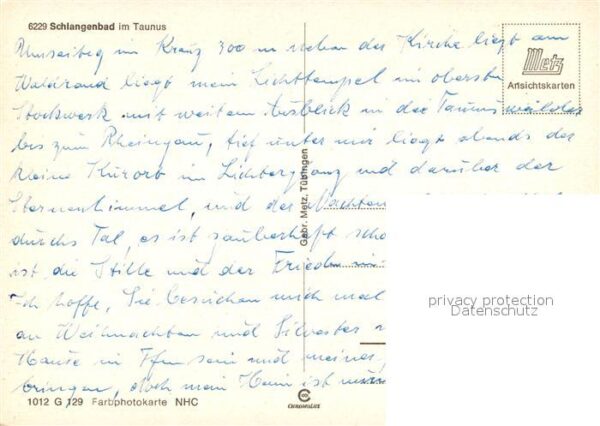 6229 Schlangenbad im Taunus
im Kreuz 300 m neben der Kirche liegt am
Waldrand liegt mein Lichttempel im obersten
Stockwerk mit weitem Ausblick in die Taunuswälder
bis zum Rheingau, tief unter mir liegt abends der
kleine Kurort im Lichterglanz und darüber der
Sternenhimmel, und der
durchs Tal, es ist zauberhaft
ist die Stille und der Frieden
Ich hoffe, Sie besuchen mich mal
an Weihnachten und Silvester
Hause in Ffm sein und
bringen, doch mein Heim ist
Metz
Ansichtskarten
Gebr. Metz, Tübingen
privacy protection
Datenschutz
1012 G 129 Farbphotokarte NHC
CHROMOLUX